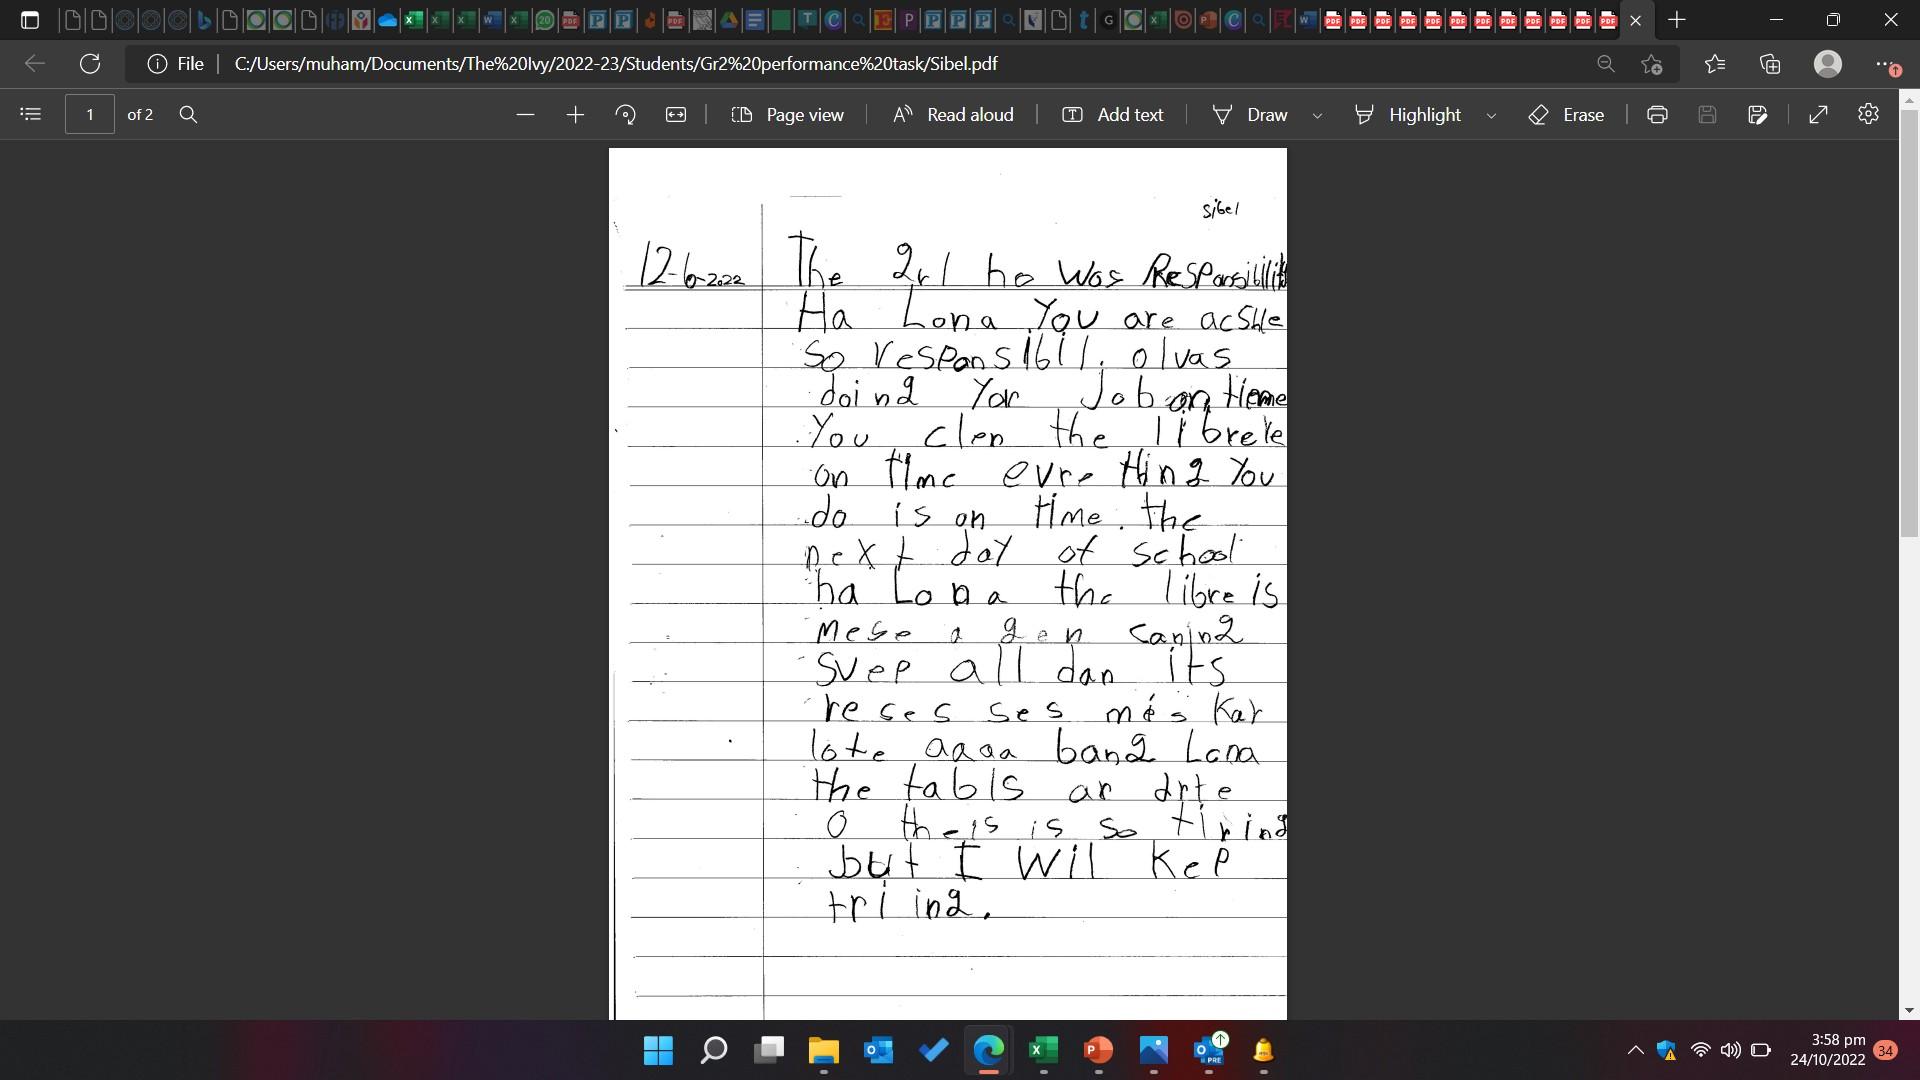 File
C:/Users/muham/Documents/The%20Ivy/2022-23/Students/Gr2%20performance%20task/Sibel.pdf
1 of 2 Page view Read aloud Add text Draw Highlight Erase
Sibel
12-6-2022 The grl ho was Responsibility
Ha Lona You are acshle
so responsibil. olvas
doing Yor Job on tieme
You clen the librele
on time evre thing You
do is on time. the
next day of school
ha Lona the libre is
mese a gen caning
svep all dan its
reses ses mes Kar
lote aaaa bang Lona
the tabls ar drte
O theis is so tiring
but I Wil Kep
triing.
3:58 pm
24/10/2022
34